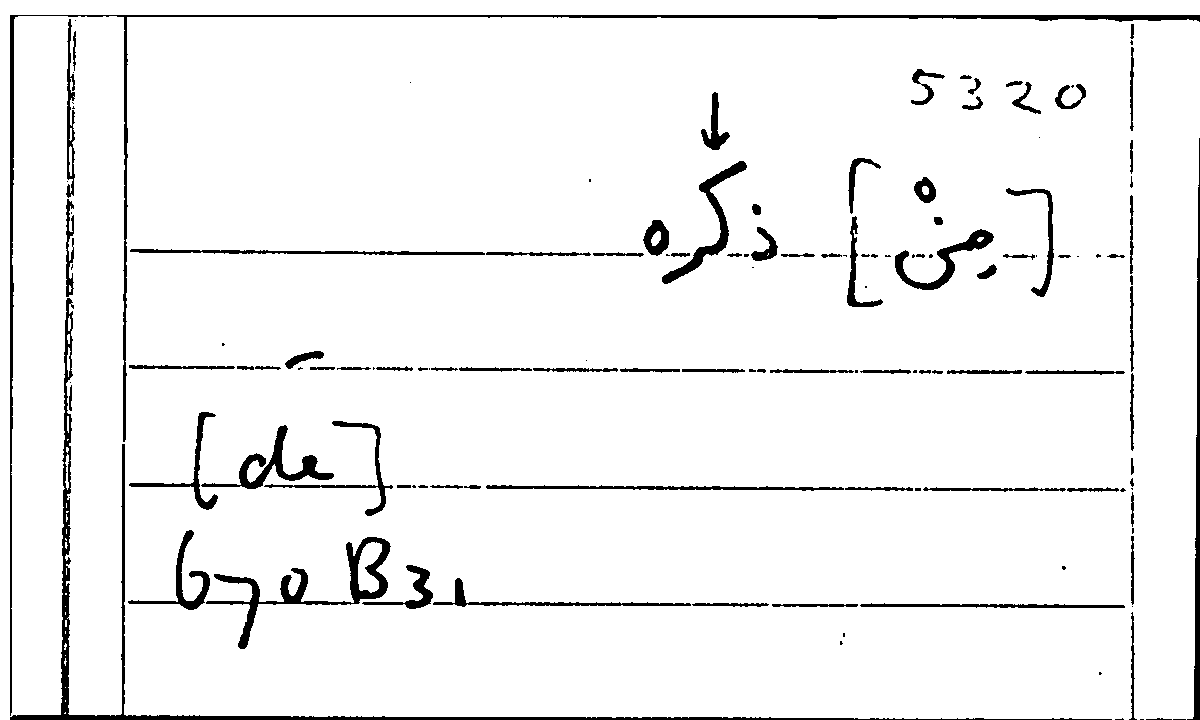 5320
[مِنْ] ذكره
[de]
670 B31